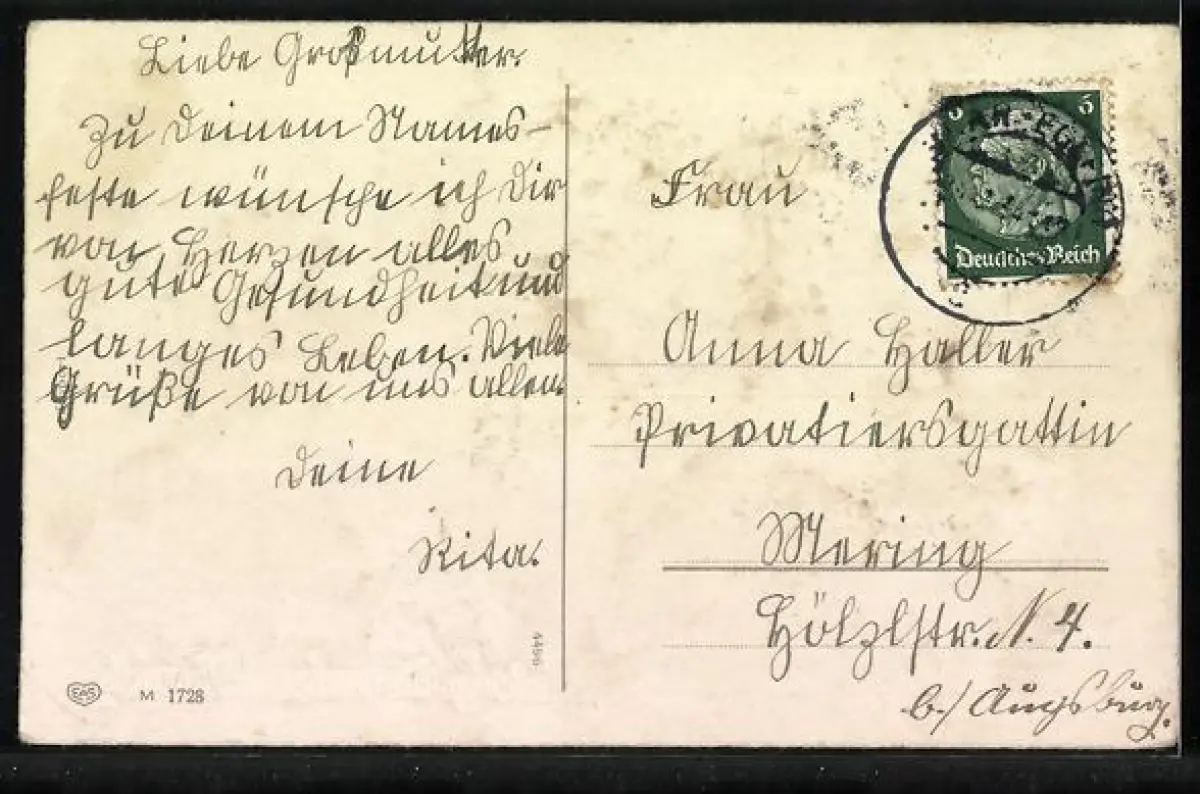 Liebe Großmutter.
Zu Deinem Namens-
feste wünsche ich Dir
von Herzen alles
gute Gesundheit und
langes Leben. Viele
Grüße von uns allen.
Deine
Rita.
EAS
M 1728
Frau
Anna Haller
Privatiersgattin
Mering
Hölzlstr. N. 4.
b./ Augsburg.
6 6
Deutsches Reich